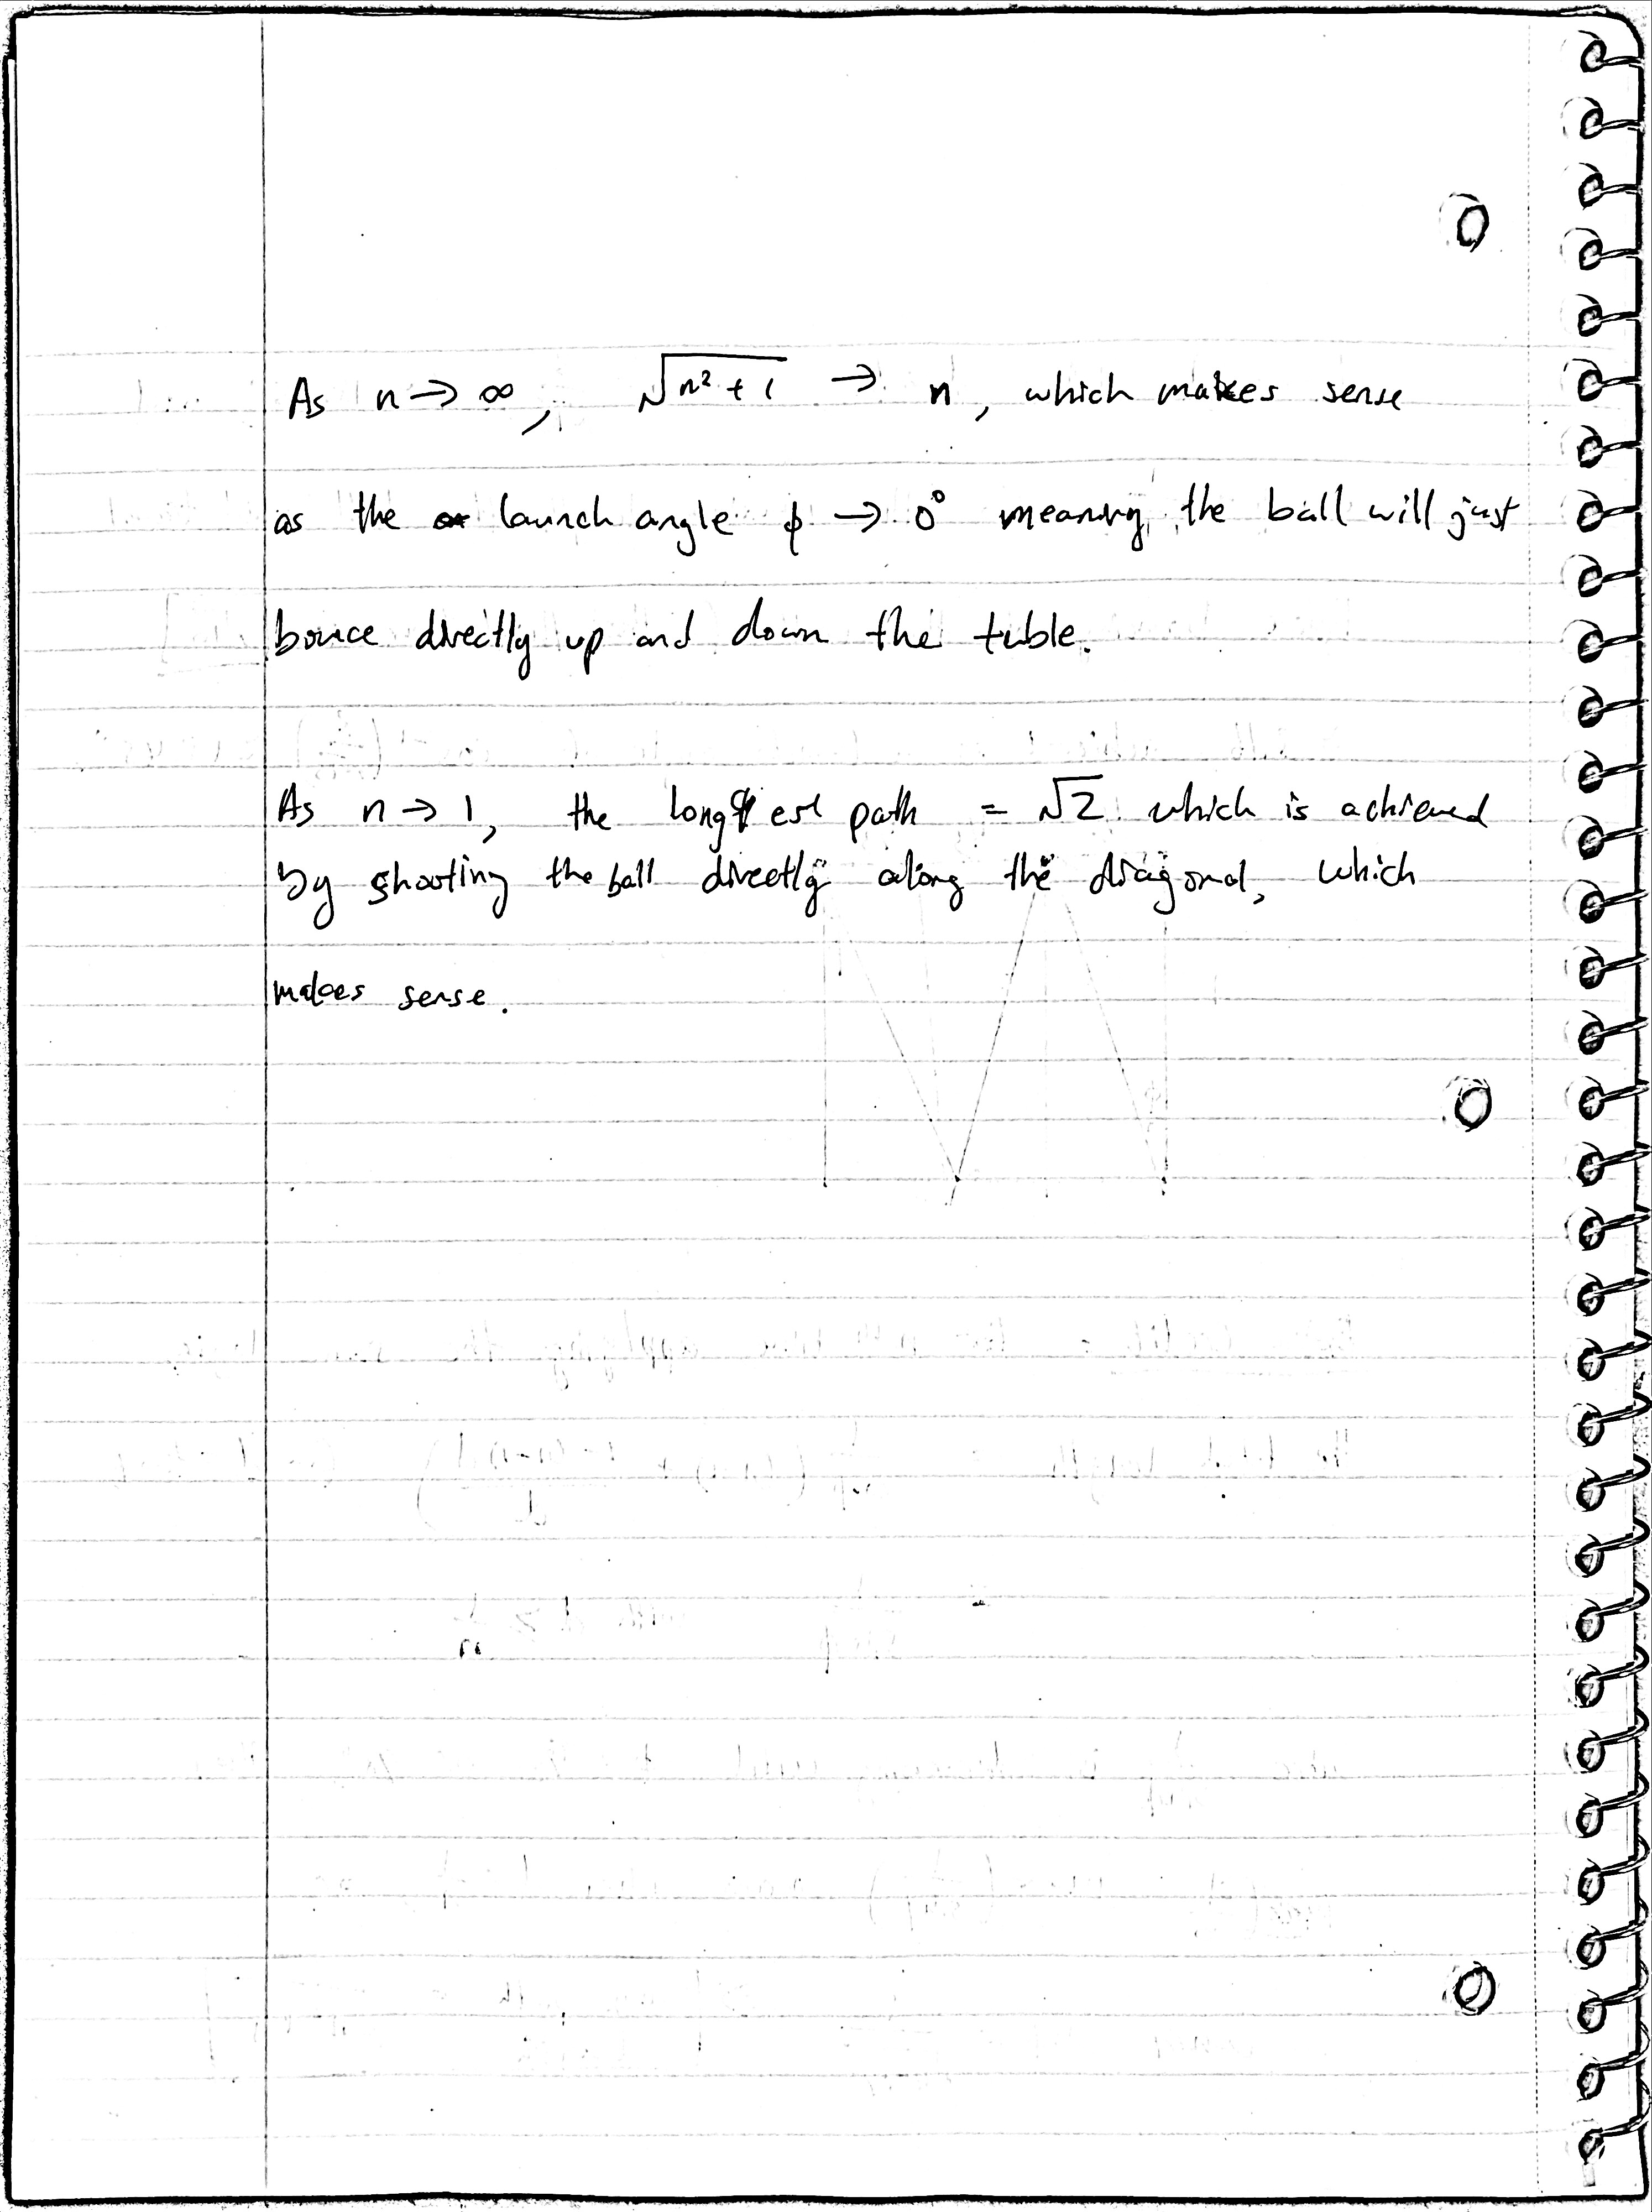 As n → ∞, √(n² + 1) → n, which makes sense
as the launch angle ϕ → 0° meaning the ball will just
bounce directly up and down the table.
As n → 1, the longest path = √2 which is achieved
by shooting the ball directly along the diagonal, which
makes sense.